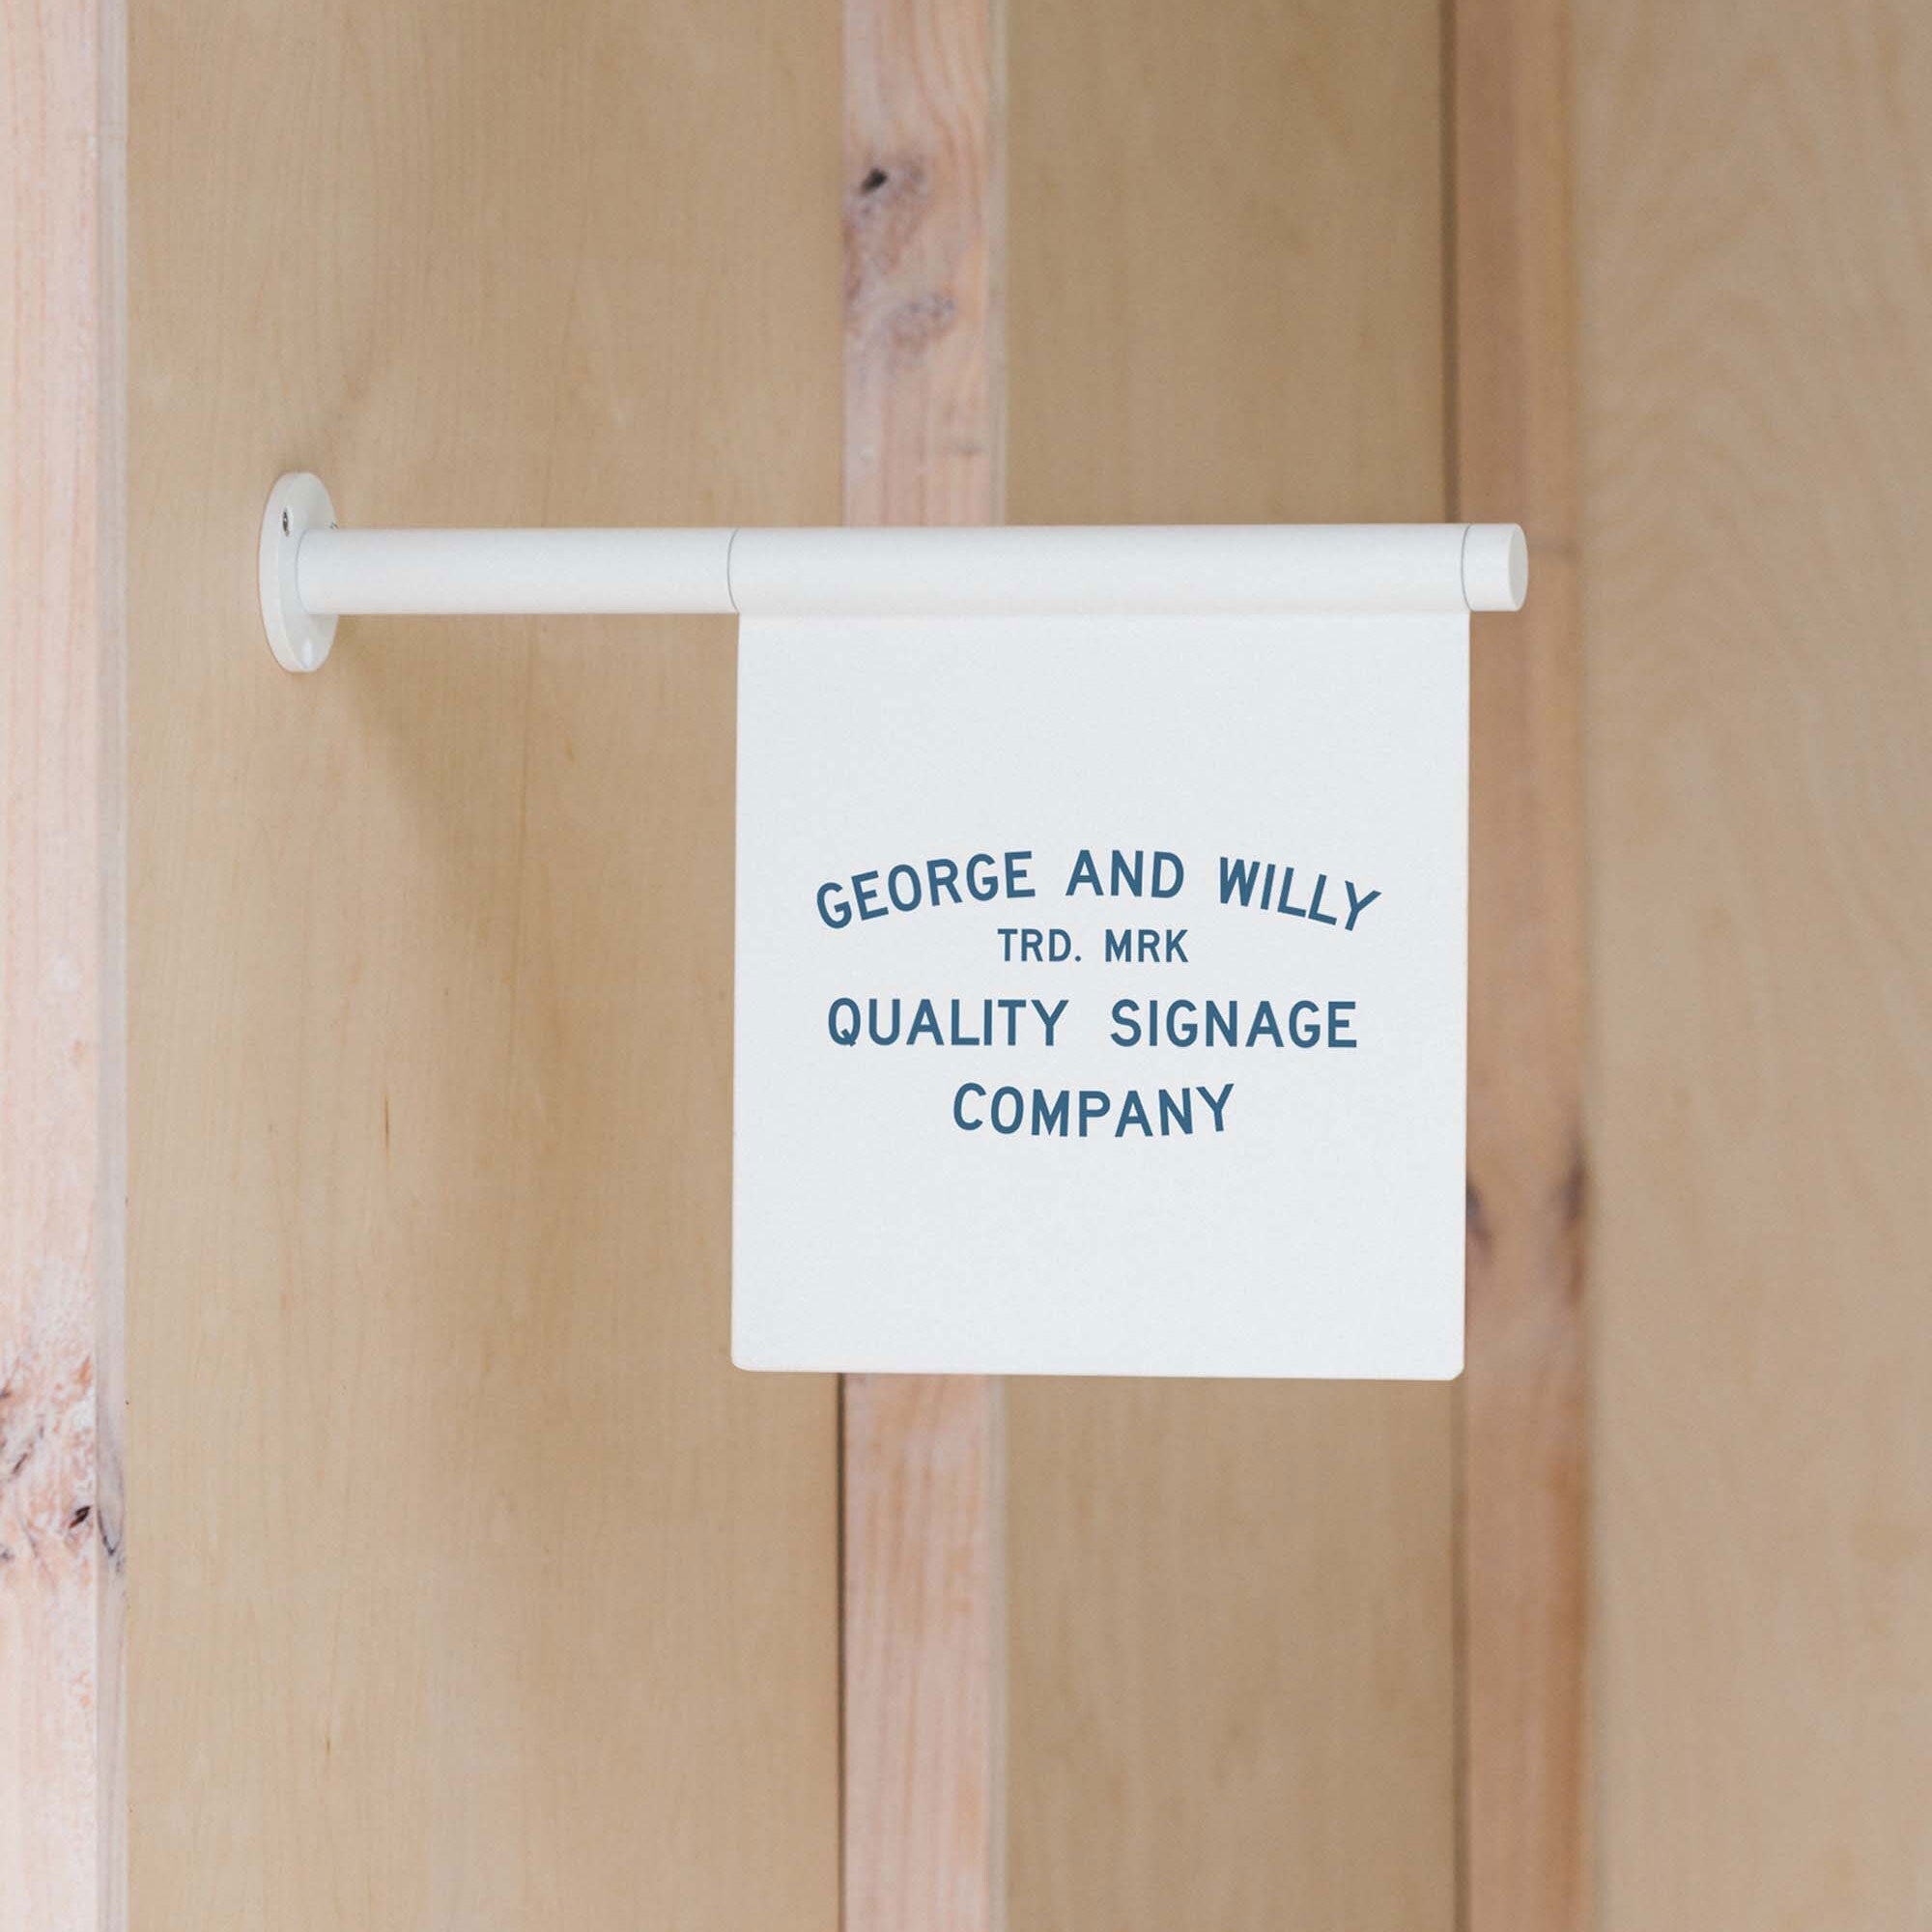 GEORGE AND WILLY
TRD. MRK
QUALITY SIGNAGE
COMPANY